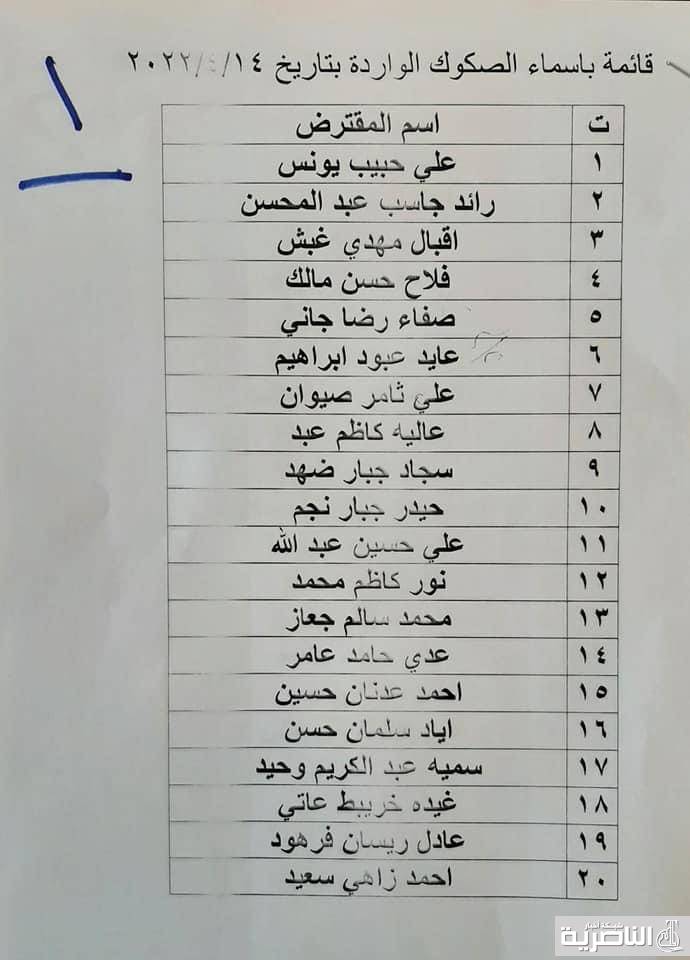 قائمة باسماء الصكوك الواردة بتاريخ ٢٠٢٢/٤/١٤
١
ت اسم المقترض
١ علي حبيب يونس
٢ رائد جاسب عبد المحسن
٣ اقبال مهدي غبش
٤ فلاح حسن مالك
٥ صفاء رضا جاني
٦ عايد عبود ابراهيم
٧ علي ثامر صيوان
٨ عاليه كاظم عبد
٩ سجاد جبار ضهد
١٠ حيدر جبار نجم
١١ علي حسين عبد الله
١٢ نور كاظم محمد
١٣ محمد سالم جعاز
١٤ عدي حامد عامر
١٥ احمد عدنان حسين
١٦ اياد سلمان حسن
١٧ سميه عبد الكريم وحيد
١٨ غيده خريبط عاتي
١٩ عادل ريسان فرهود
٢٠ احمد زاهي سعيد
شبكة اخبار
الناصرية